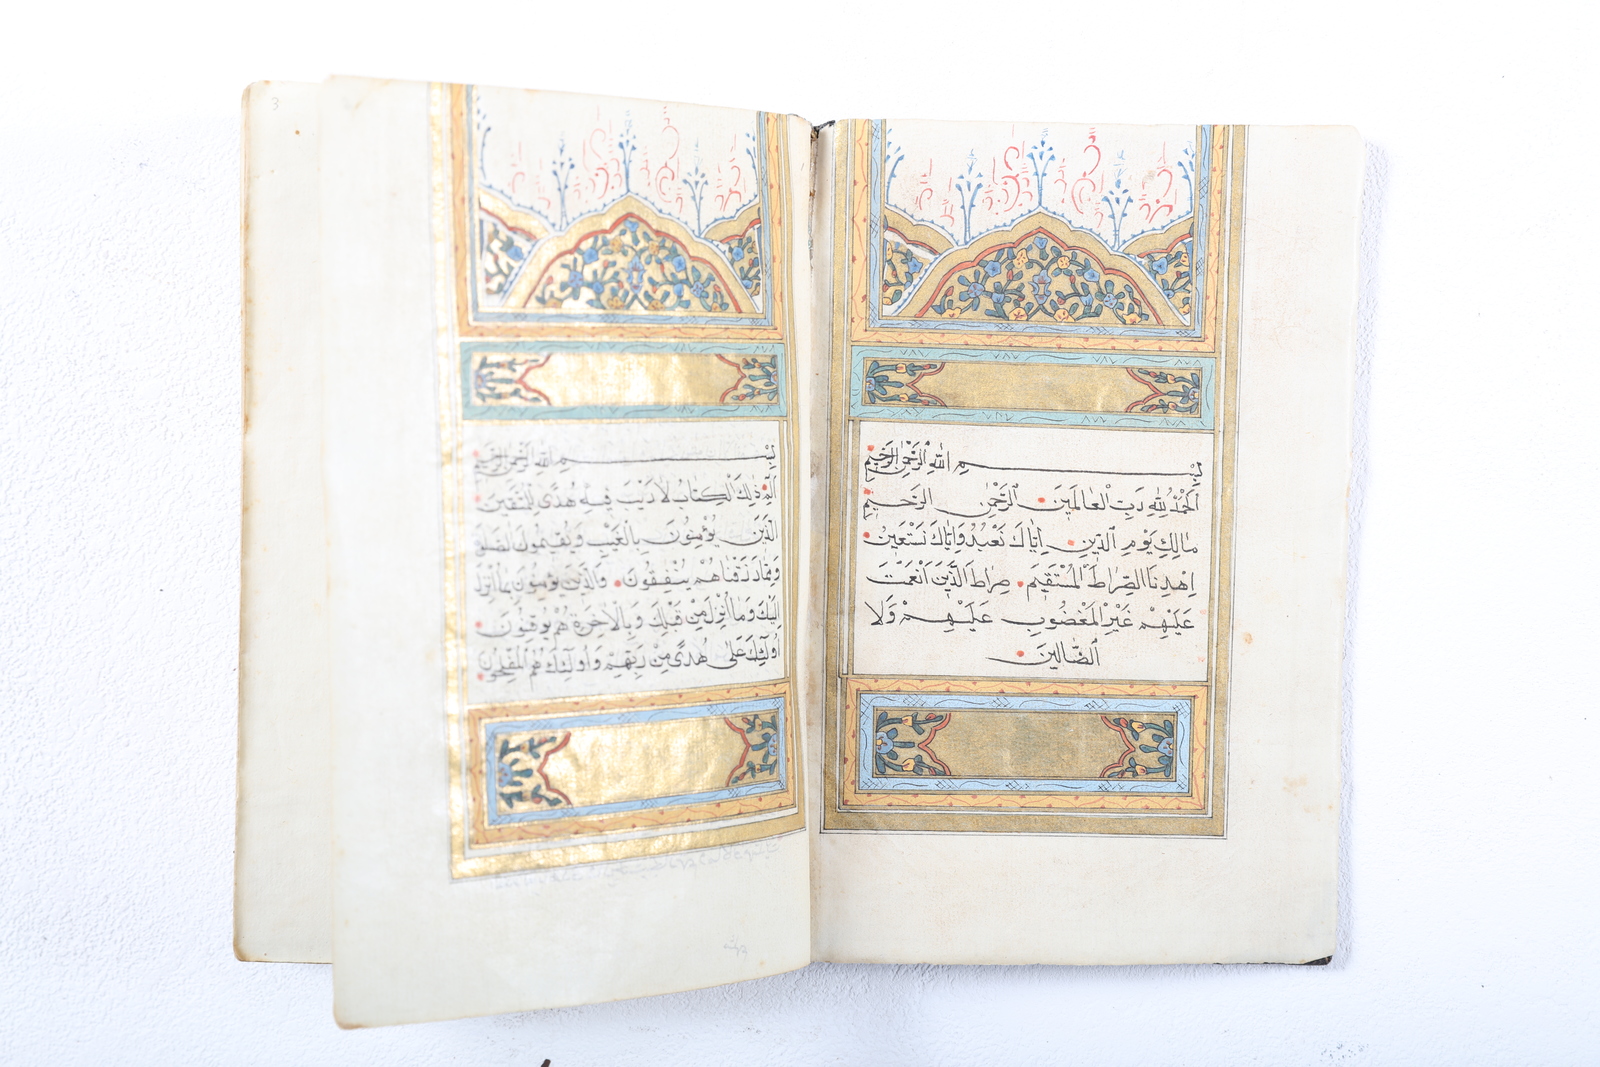 بِسْمِ اللهِ الرَّحْمٰنِ الرَّحِيمِ
اَلْحَمْدُ لِلّٰهِ رَبِّ الْعَالَمِينَ الرَّحْمٰنِ الرَّحِيمِ
مَالِكِ يَوْمِ الدِّينِ اِيَّاكَ نَعْبُدُ وَاِيَّاكَ نَسْتَعِينُ
اِهْدِنَا الصِّرَاطَ الْمُسْتَقِيمَ صِرَاطَ الَّذِينَ اَنْعَمْتَ
عَلَيْهِمْ غَيْرِ الْمَغْضُوبِ عَلَيْهِمْ وَلَا
الضَّالِّينَ
بِسْمِ اللهِ الرَّحْمٰنِ الرَّحِيمِ
الٓمٓ ذٰلِكَ الْكِتَابُ لَا رَيْبَ فِيهِ هُدًى لِلْمُتَّقِينَ
الَّذِينَ يُؤْمِنُونَ بِالْغَيْبِ وَيُقِيمُونَ الصَّلٰوةَ
وَمِمَّا رَزَقْنَاهُمْ يُنْفِقُونَ وَالَّذِينَ يُؤْمِنُونَ بِمَا اُنْزِلَ
اِلَيْكَ وَمَا اُنْزِلَ مِنْ قَبْلِكَ وَبِالْاٰخِرَةِ هُمْ يُوقِنُونَ
اُولٰئِكَ عَلٰى هُدًى مِنْ رَبِّهِمْ وَاُولٰئِكَ هُمُ الْمُفْلِحُونَ
3